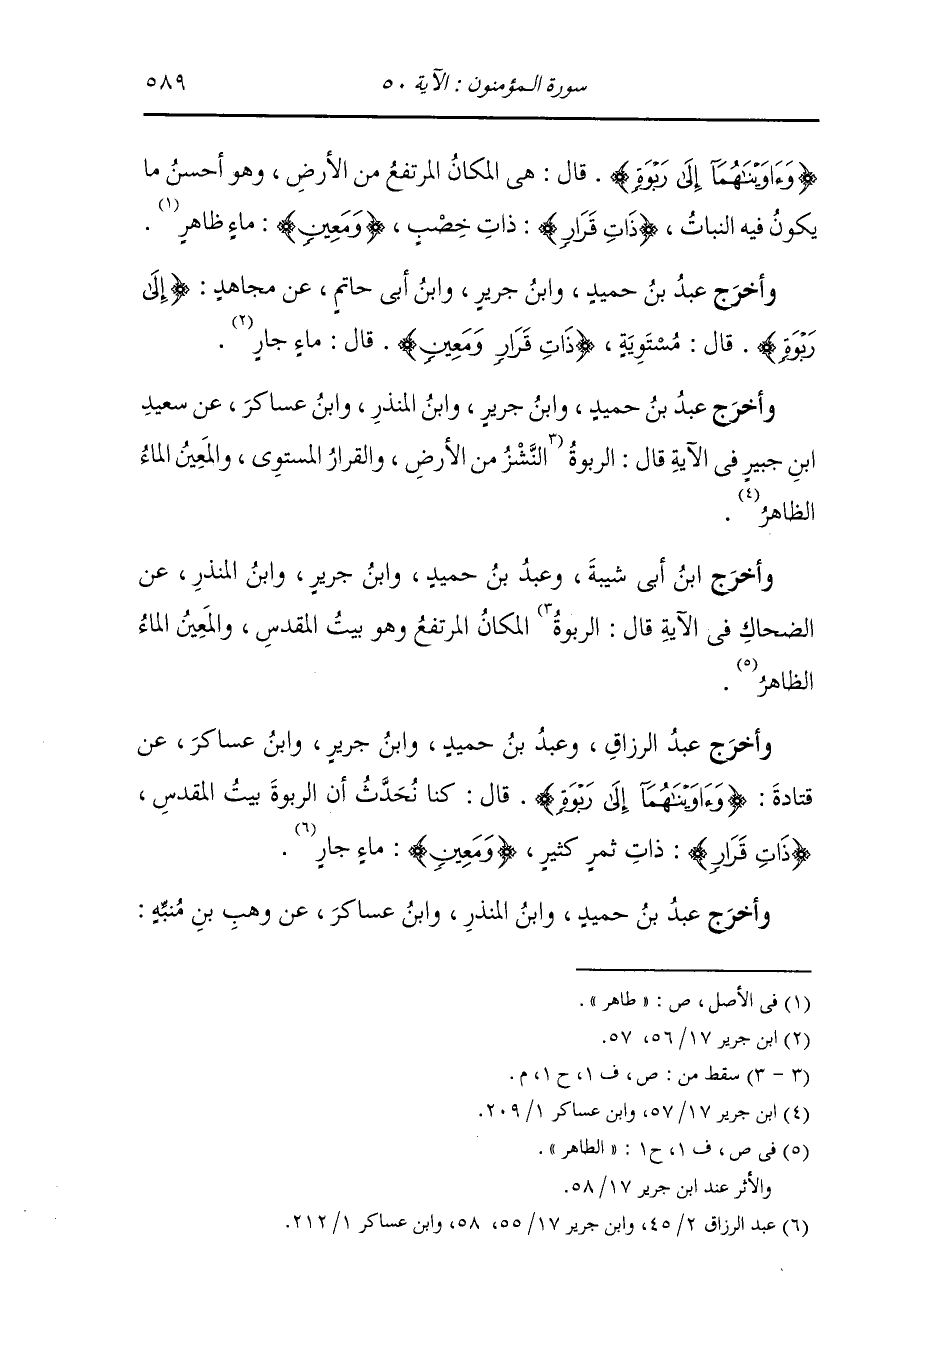 سورة المؤمنون : الآية ٥٠ ٥٨٩
﴿وَءَاوَيْنَٰهُمَآ إِلَىٰ رَبْوَةٍ﴾ . قال : هى المكانُ المرتفعُ من الأرضِ ، وهو أحسنُ ما
يكونُ فيه النباتُ ، ﴿ذَاتِ قَرَارٍ﴾ : ذاتِ خِصْبٍ ، ﴿وَمَعِينٍ﴾ : ماءٍ ظاهرٍ(١) .
وأخرَج عبدُ بنُ حميدٍ ، وابنُ جريرٍ ، وابنُ أبى حاتمٍ ، عن مجاهدٍ : ﴿إِلَىٰ
رَبْوَةٍ﴾ . قال : مُسْتَوِيَةٍ ، ﴿ذَاتِ قَرَارٍ وَمَعِينٍ﴾ . قال : ماءٍ جارٍ(٢) .
وأخرَج عبدُ بنُ حميدٍ ، وابنُ جريرٍ ، وابنُ المنذرِ ، وابنُ عساكرَ ، عن سعيدِ
ابنِ جبيرٍ فى الآيةِ قال : الربوةُ (٣النَّشْزُ من الأرضِ ، والقرارُ المستوِى ، والمَعِينُ الماءُ
الظاهرُ(٤) .
وأخرَج ابنُ أبى شيبةَ ، وعبدُ بنُ حميدٍ ، وابنُ جريرٍ ، وابنُ المنذرِ ، عن
الضحاكِ فى الآيةِ قال : الربوةُ٣) المكانُ المرتفعُ وهو بيتُ المقدسِ ، والمَعِينُ الماءُ
الظاهرُ(٥) .
وأخرَج عبدُ الرزاقِ ، وعبدُ بنُ حميدٍ ، وابنُ جريرٍ ، وابنُ عساكرَ ، عن
قتادةَ : ﴿وَءَاوَيْنَٰهُمَآ إِلَىٰ رَبْوَةٍ﴾ . قال : كنا نُحَدَّثُ أن الربوةَ بيتُ المقدسِ ،
﴿ذَاتِ قَرَارٍ﴾ : ذاتِ ثمرٍ كثيرٍ ، ﴿وَمَعِينٍ﴾ : ماءٍ جارٍ(٦) .
وأخرَج عبدُ بنُ حميدٍ ، وابنُ المنذرِ ، وابنُ عساكرَ ، عن وهبِ بنِ مُنبِّهٍ :
(١) فى الأصل ، ص : « طاهر » .
(٢) ابن جرير ١٧/ ٥٦، ٥٧.
(٣ - ٣) سقط من : ص ، ف ١، ح ١، م .
(٤) ابن جرير ١٧/ ٥٧، وابن عساكر ١/ ٢٠٩.
(٥) فى ص ، ف ١، ح١ : « الطاهر » .
والأثر عند ابن جرير ١٧/ ٥٨.
(٦) عبد الرزاق ٢/ ٤٥، وابن جرير ١٧/ ٥٥، ٥٨، وابن عساكر ١/ ٢١٢.